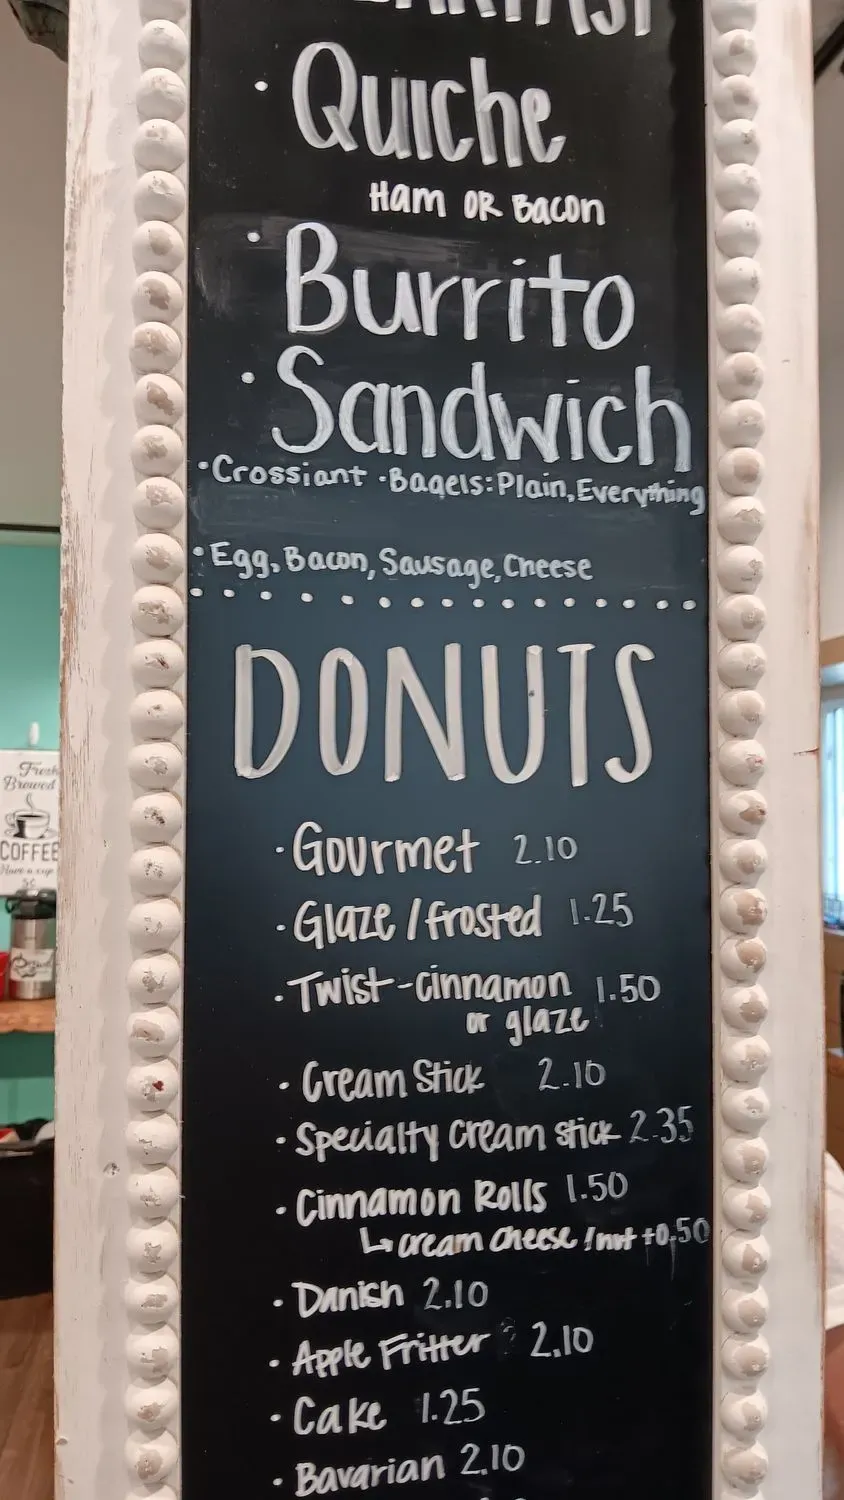 • Quiche
Ham OR Bacon
• Burrito
• Sandwich
• Crossiant • Bagels: Plain, Everything
• Egg, Bacon, Sausage, Cheese
DONUTS
• Gourmet 2.10
• Glaze / frosted 1.25
• Twist - cinnamon 1.50
or glaze
• Cream Stick 2.10
• Specialty Cream stick 2.35
• Cinnamon Rolls 1.50
↳ cream cheese / nut +0.50
• Danish 2.10
• Apple Fritter 2.10
• Cake 1.25
• Bavarian 2.10
Fresh
Brewed
COFFEE